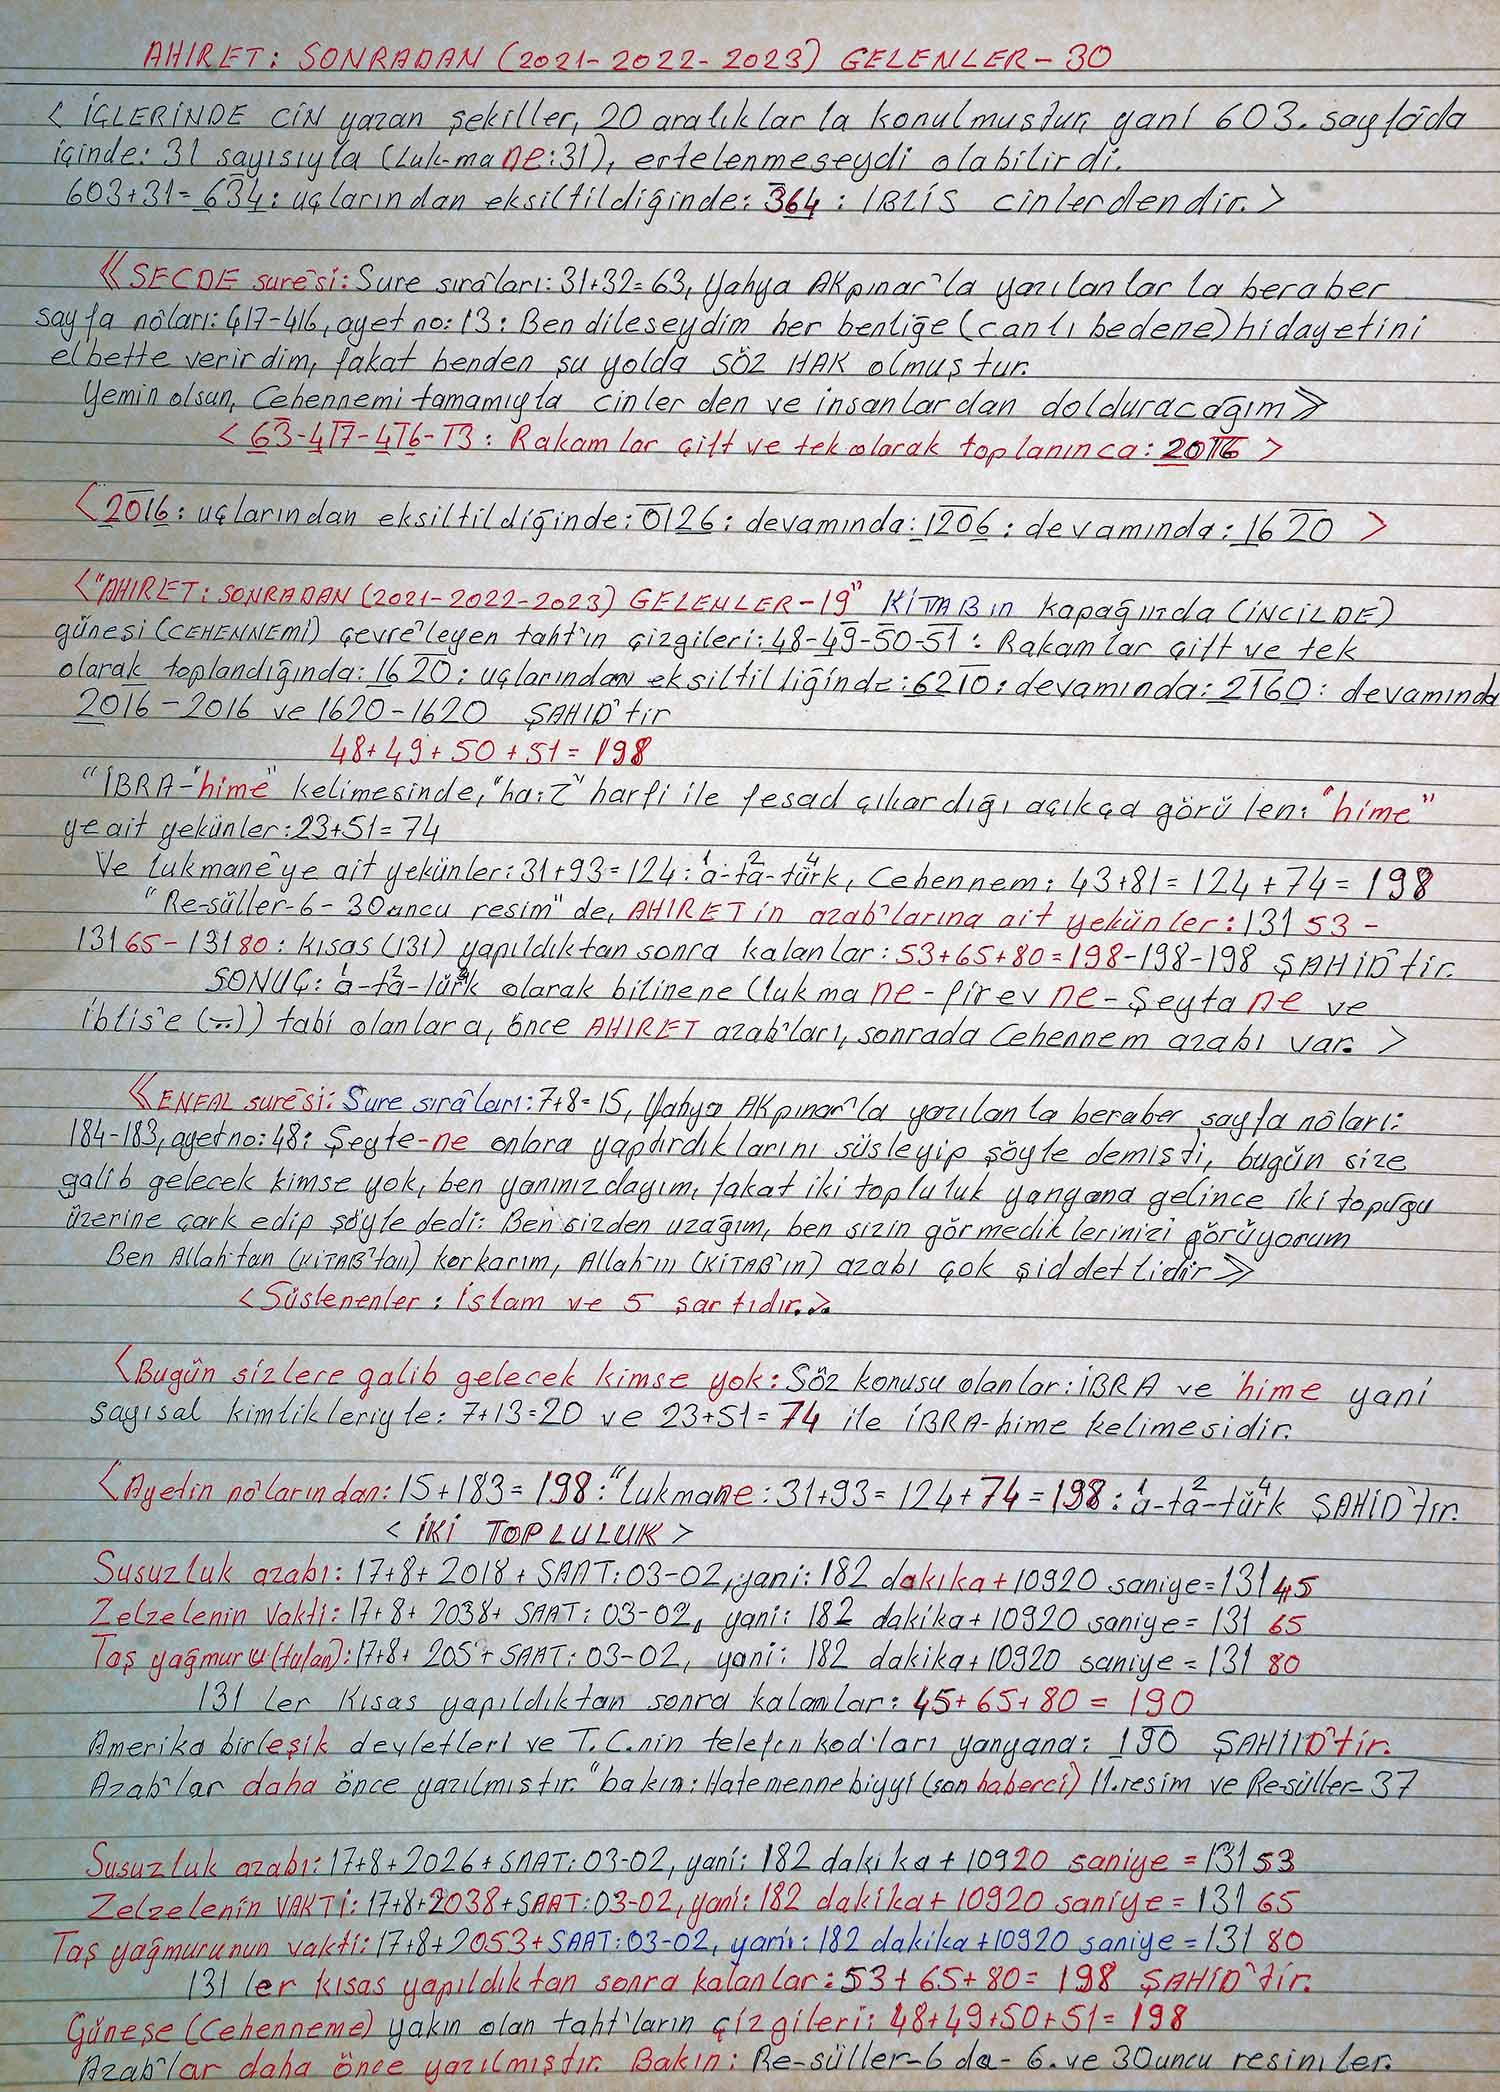 AHIRET: SONRADAN (2021-2022-2023) GELENLER-30
< İÇLERİNDE CİN yazan şekiller, 20 aralıklar la konulmuştur, yani 603. sayfâda
içinde: 31 sayısıyla (luk-mane:31), ertelenmeseydi olabilirdi.
603+31=634: uçlarından eksiltildiğinde: 364 : İBLİS cinlerdendir.>
≪SECDE surêsi: Sure sırâları: 31+32=63, Yahya AKpınar'la yazılanlar la beraber
sayfa nôları: 417-416, ayet no: 13: Ben dileseydim her benliğe (canlı bedene) hidayetini
elbette verirdim, fakat benden şu yolda SÖZ HAK olmuştur.
Yemin olsun, Cehennemi tamamıyla cinler den ve insanlardan dolduracağım≫
< 63-417-416-13 : Rakamlar çift ve tek olarak toplanınca: 2016 >
<2016: uçlarından eksiltildiğinde: 0126 : devamında: 1206 : devamında: 1620 >
<"AHIRET: SONRADAN (2021-2022-2023) GELENLER-19" KİTABın kapağında (İNCİLDE)
güneşi (CEHENNEMİ) çevre'leyen taht'ın çizgileri: 48-49-50-51 : Rakamlar çift ve tek
olarak toplandığında: 1620: uçlarından eksiltildiğinde: 6210: devamında: 2160: devamında
2016-2016 ve 1620-1620 ŞAHİD'tir
48+49+50+51=198
"İBRA-"hime" kelimesinde, "ha: Z" harfi ile fesad çıkardığı açıkça görülen: "hime"
ye ait yekünler: 23+51=74
Ve lukmane'ye ait yekünler: 31+93=124: a1-ta2-türk4, Cehennem: 43+81=124+74=198
"Re-süller-6-30uncu resim" de, AHIRET'in azab'larına ait yekünler: 13153-
13165-13180: kısas (131) yapıldıktan sonra kalanlar: 53+65+80=198-198-198 ŞAHİD'tir.
SONUÇ: a1-ta2-türk olarak bilinene (lukmane-firevne-şeytane ve
iblis'e (...)) tabi olanlara, önce AHIRET azab'ları, sonrada Cehennem azabı var. >
≪ENFAL surêsi: Sure sırâları: 7+8=15, Yahya AKpınar'la yazılanla beraber sayfa nôları:
184-183, ayet no: 48: Şeyte-ne onlara yaptırdıklarını süsleyip şöyle demişti, bugün size
galib gelecek kimse yok, ben yanınızdayım, fakat iki topluluk yanyana gelince iki topuğu
üzerine çark edip şöyle dedi: Ben sizden uzağım, ben sizin görmediklerinizi görüyorum
Ben Allah'tan (KİTAB'tan) korkarım, Allah'ın (KİTAB'ın) azabı çok şiddetlidir≫
<Süslenenler : İslam ve 5 şartıdır.>
<Bugün sizlere galib gelecek kimse yok: Söz konusu olanlar: İBRA ve hime yani
sayısal kimlikleriyle: 7+13=20 ve 23+51=74 ile İBRA-hime kelimesidir.
<Ayetin nolarından: 15+183=198: "lukmane: 31+93=124+74=198: a1-ta2-türk4 ŞAHİD'tır.
< İKİ TOPLULUK >
Susuzluk azabı: 17+8+2018+SAAT: 03-02, yani: 182 dakika+10920 saniye=13145
Zelzelenin Vakti: 17+8+2038+SAAT: 03-02, yani: 182 dakika+10920 saniye=13165
Taş yağmuru (tufan): 17+8+205 +SAAT: 03-02, yani: 182 dakika+10920 saniye=13180
131 ler Kısas yapıldıktan sonra kalanlar: 45+65+80=190
Amerika birleşik devletleri ve T.C.nin telefon kod'ları yanyana: 190 ŞAHİD'tir.
Azab'lar daha önce yazılmıştır. "bakın: Hatemennebiyyi (son haberci) 11.resim ve Re-süller-37
Susuzluk azabı: 17+8+2026+SAAT: 03-02, yani: 182 dakika+10920 saniye=13153
Zelzelenin VAKTİ: 17+8+2038+SAAT: 03-02, yani: 182 dakika+10920 saniye=13165
Taş yağmurunun vakti: 17+8+2053+SAAT: 03-02, yani: 182 dakika+10920 saniye=13180
131 ler kısas yapıldıktan sonra kalanlar: 53+65+80=198 ŞAHİD'tir.
Güneşe (Cehenneme) yakın olan taht'ların çizgileri: 48+49+50+51=198
Azab'lar daha önce yazılmıştır. Bakın: Re-süller-6 da-6. ve 30uncu resimler.